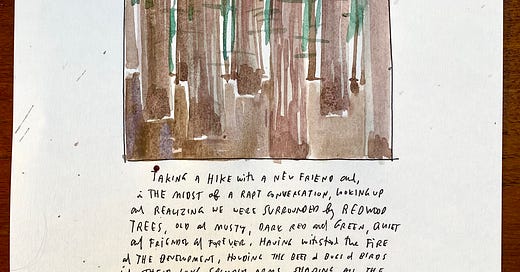 TAKING A HIKE with A NEW FRIEND and,
in THE MIDST of A RAPT CONVERSATION, LOOKING UP
and REALIZING WE WERE SURROUNDED by REDWOOD
TREES, OLD and MUSTY, DARK RED and GREEN, QUIET
and FRIENDLY and FOREVER. HAVING withstood the FIRE
and THE DEVELOPMENT, HOLDING THE BEES and BUGS and BIRDS
in THEIR LONG ARMS, SHARING ALL THE